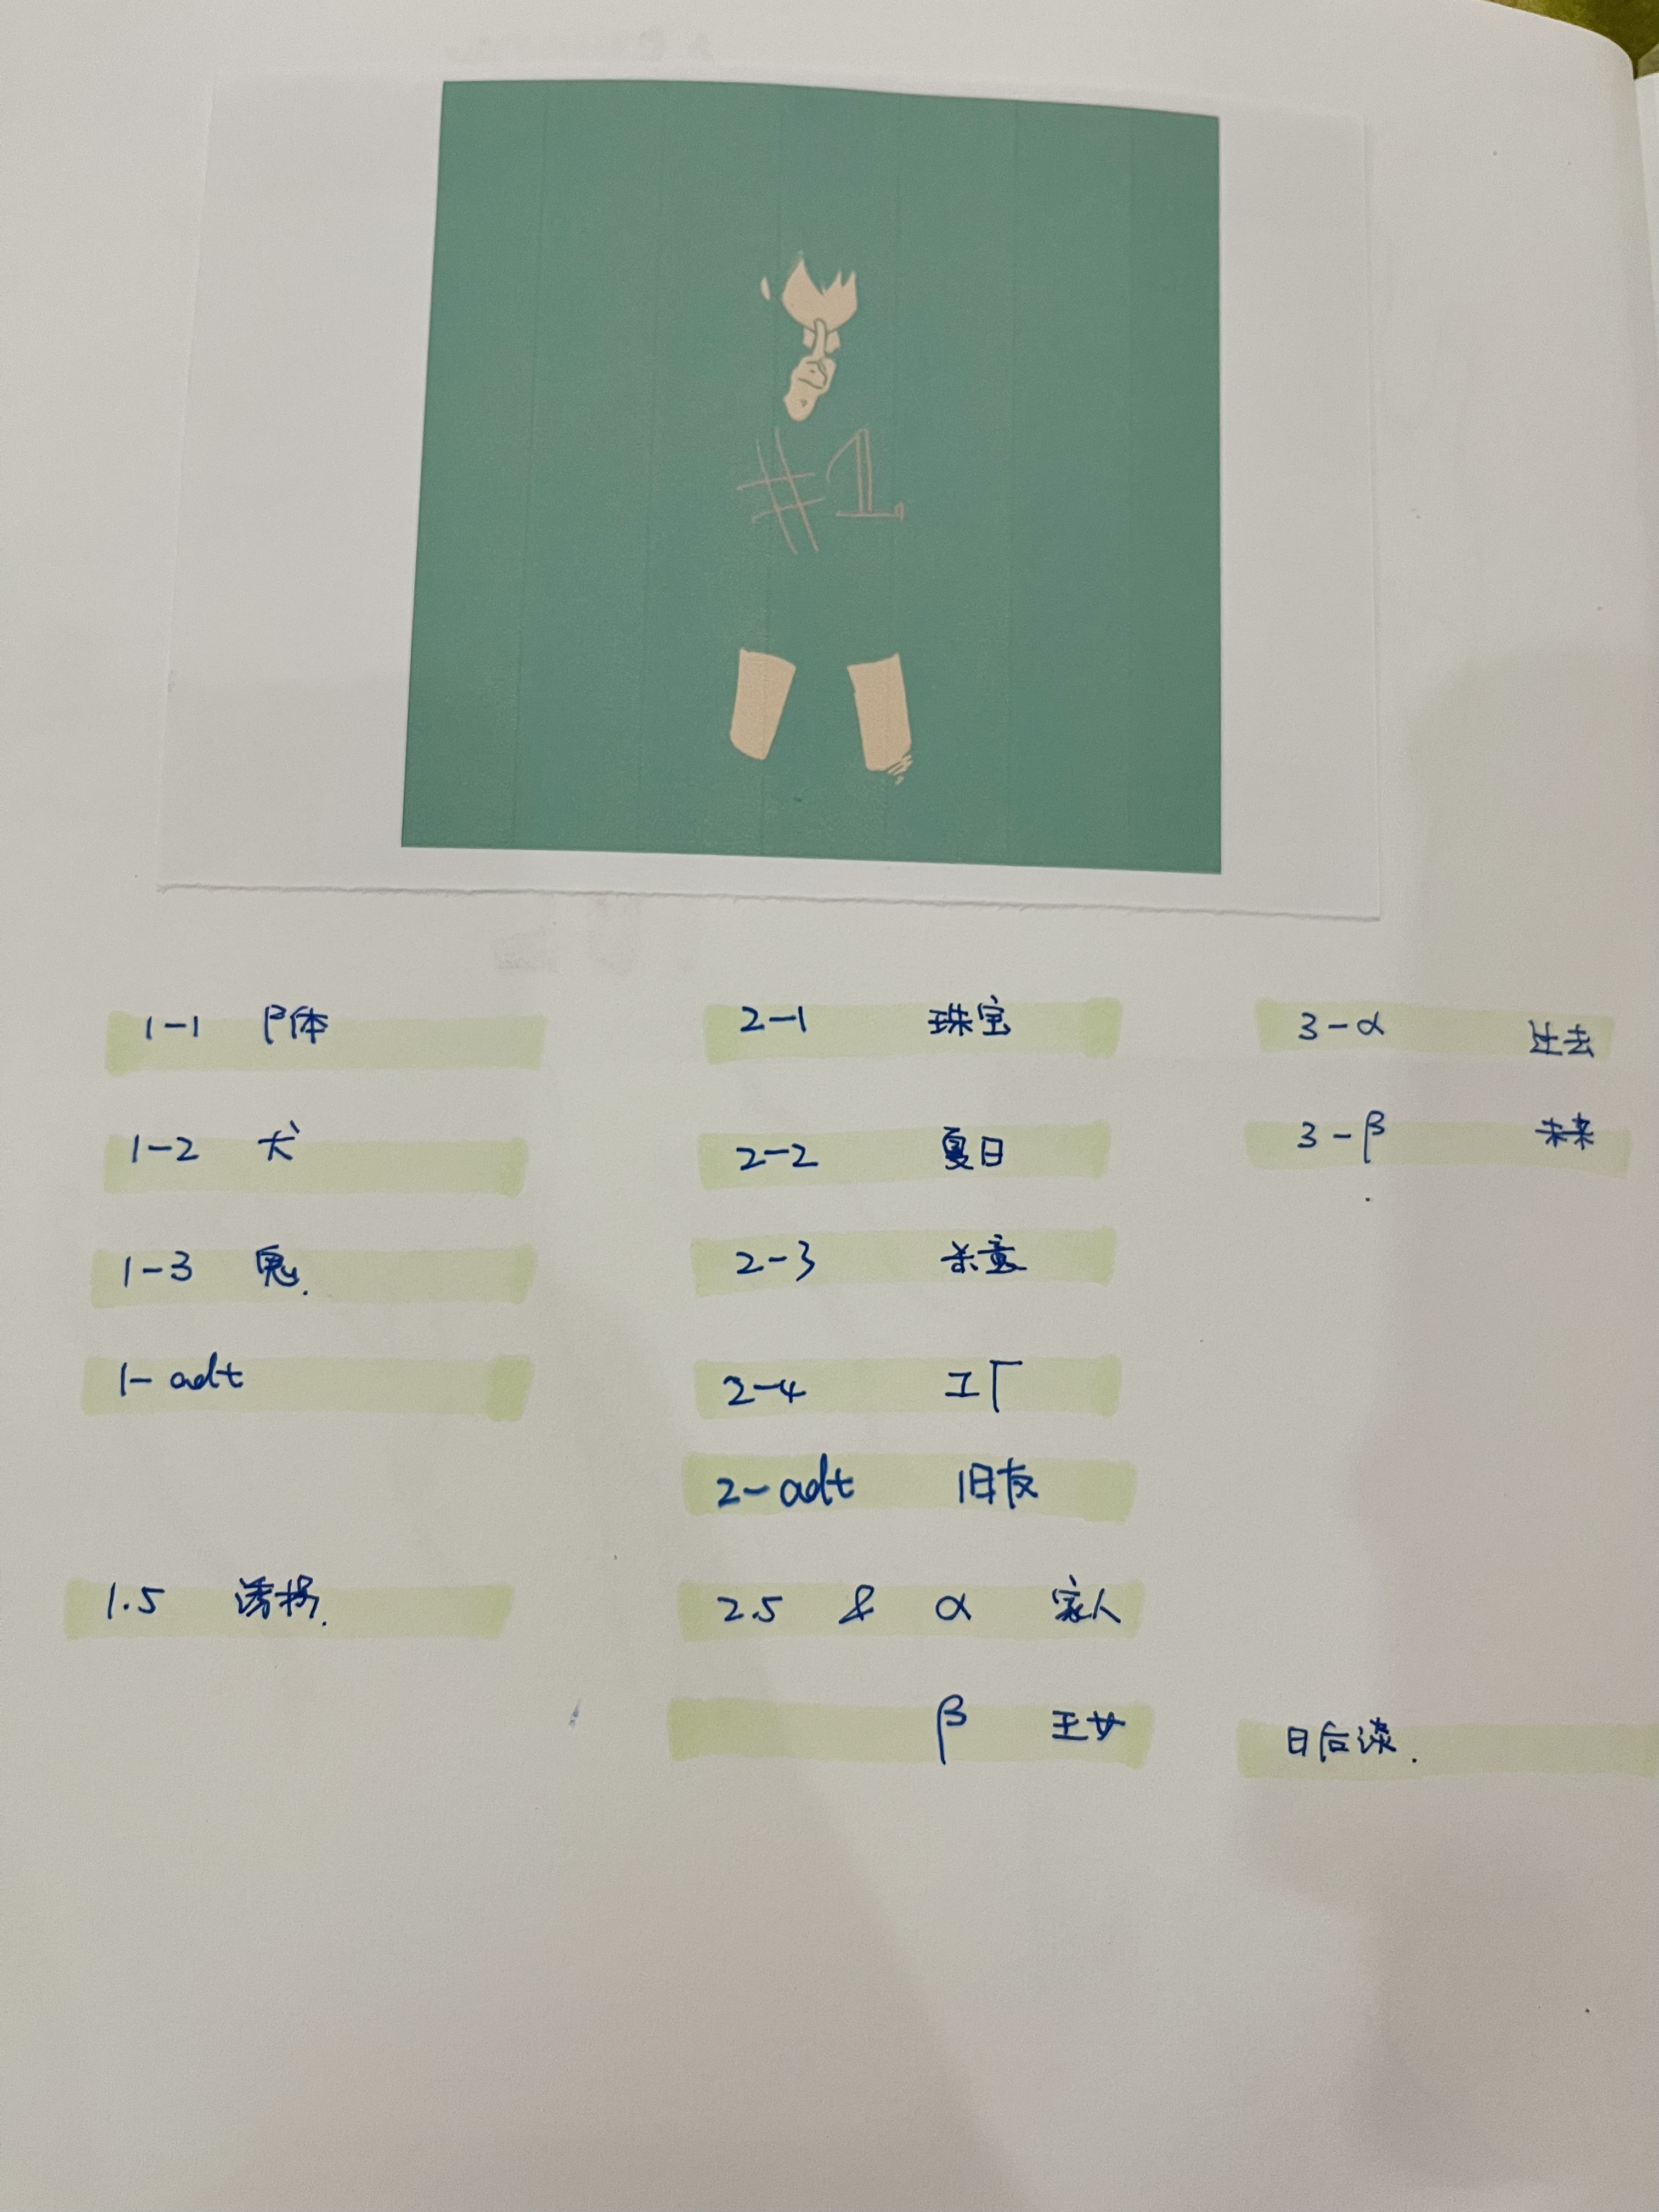 #1.
1-1 尸体
1-2 犬
1-3 鬼.
1-adt
1.5 诱拐.
2-1 珠宝
2-2 夏日
2-3 杀童
2-4 工厂
2-adt 旧友
2.5 & α 家人
β 王女
3-α 过去
3-β 未来
日后谈.